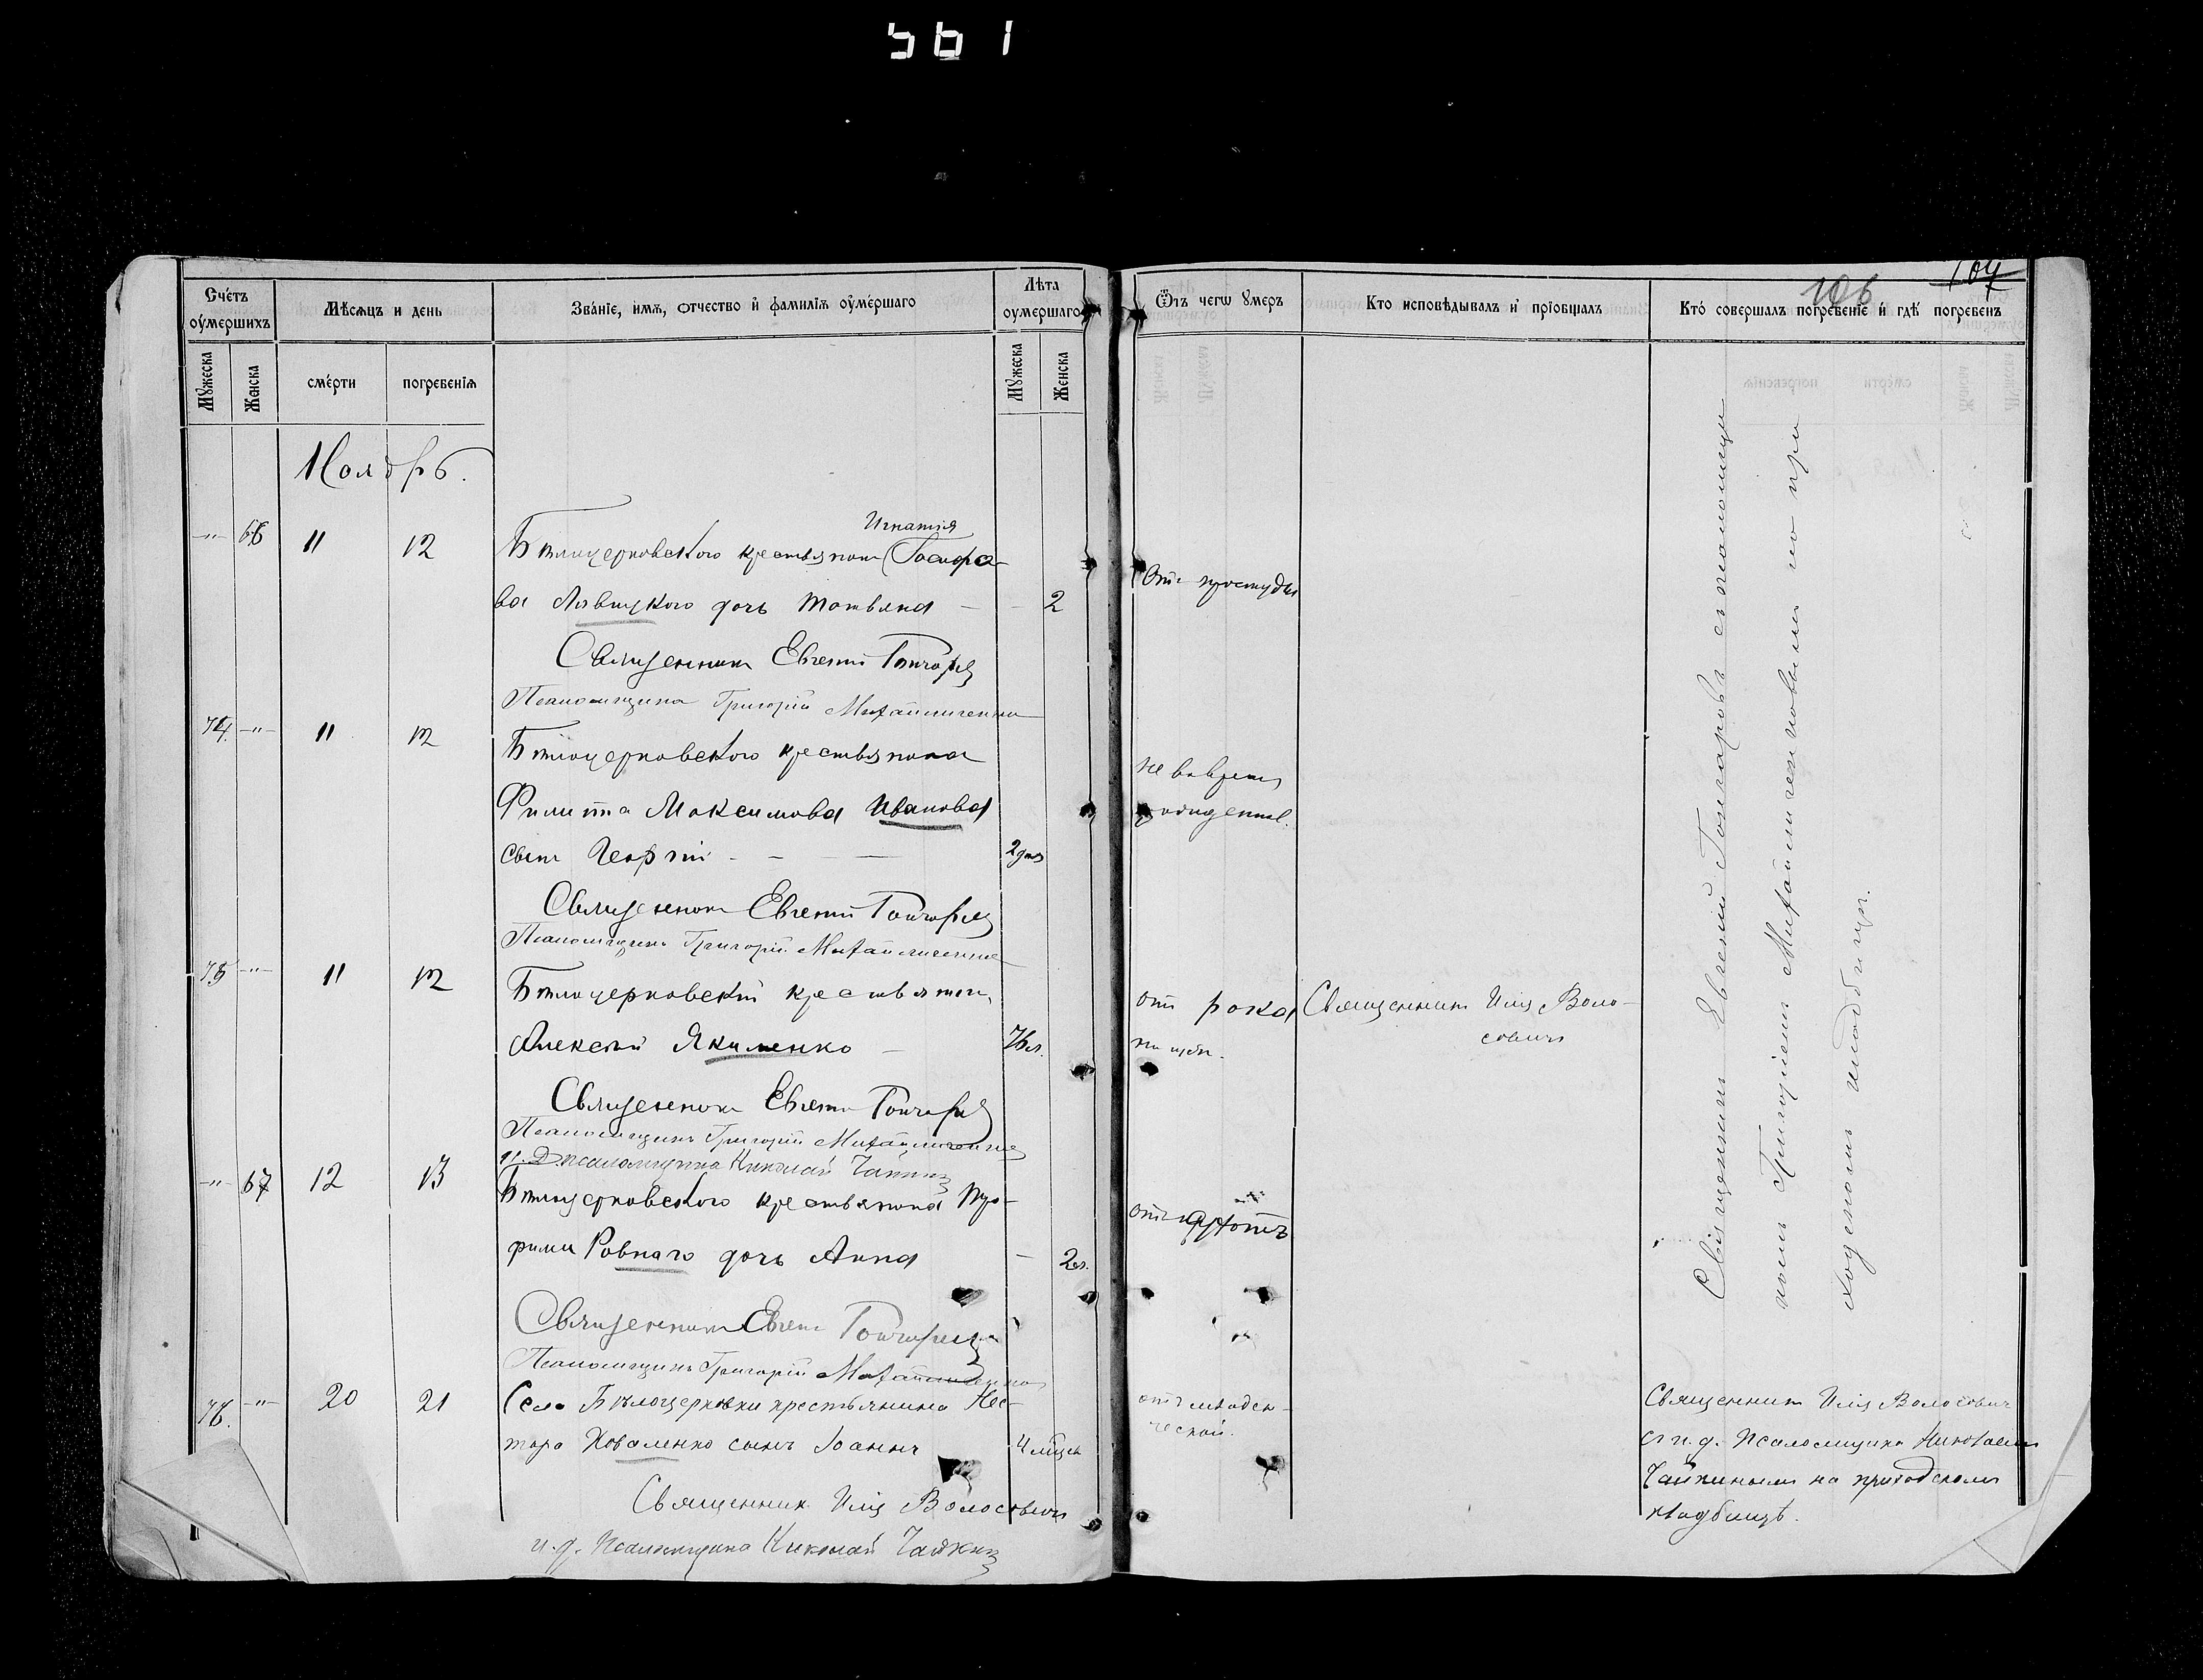 561
106
104
Счетъ оумершихъ
Мѣсяцъ и день
Званіе, имя, отчество и фамилія оумершаго
Лѣта оумершаго
Мужеска
Женска
смерти
погребенія
Мужеска
Женска
Отъ чегω умеръ
Кто исповѣдывалъ и пріобщалъ
Кто совершалъ погребеніе и гдѣ погребенъ
Ноябрь.
-"- 66 11 12
Игнатія
Бѣлоцерковского крестьянина
Лявицкого дочь Татьяна — 2
Отъ простуды
Священникъ Евгеній Гончаровъ
Псаломщикъ Григорій Михайличенко
74. -"- 11 12
Бѣлоцерковского крестьянина
Филиппа Максимова Иванова
сынъ Георгій - — — 2 дня
не во время
рожденіе.
Священникъ Евгеній Гончаровъ
Псаломщикъ Григорій Михайличенко
75 -"- 11 12
Бѣлоцерковскій крестьянинъ
Алексѣй Якименко — 76 л.
отъ рака
Священникъ Илія Воло-
совичъ
Священникъ Евгеній Гончаровъ
Псаломщикъ Григорій Михайличенко
И. Д. псаломщика Николай Чайкинъ
-"- 67 12 13
Бѣлоцерковского крестьянина Про-
Ровнаго дочь Анна — 2 л.
отъ
Священникъ Евгеній Гончаровъ
Псаломщикъ Григорій Михайличенко
76. -"- 20 21
Села Бѣлоцерковки крестьянина Нес-
тора Коваленко сынъ Іоаннъ 4 мѣсяц
отъ младен-
ческой.
Священникъ Илія Волосовичъ
и. д. Псаломщика Николай Чайкинъ
Священникъ Евгеній Гончаровъ съ псаломщи
комъ Григоріемъ Михайличенковымъ на при
ходскомъ кладбищѣ.
Священникъ Илія Волосовичъ
съ и. д. Псаломщика Николаемъ
Чайкинымъ на приходскомъ
кладбищѣ.